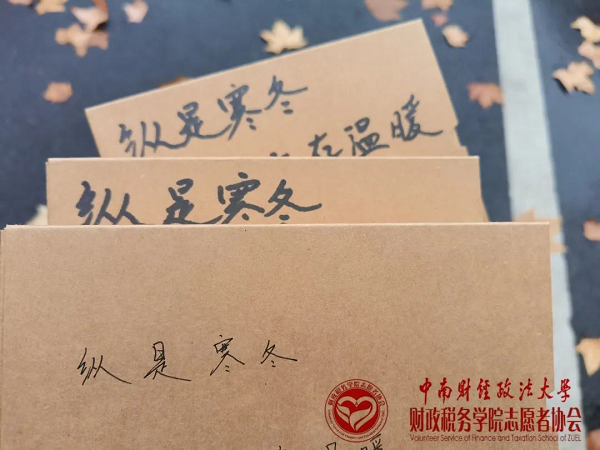 纵是寒冬
在温暖
纵是寒冬
纵是寒冬
暖
财政税务学院志愿者协会
中南财经政法大学
财政税务学院志愿者协会
Volunteer Service of Finance and Taxation School of ZUEL